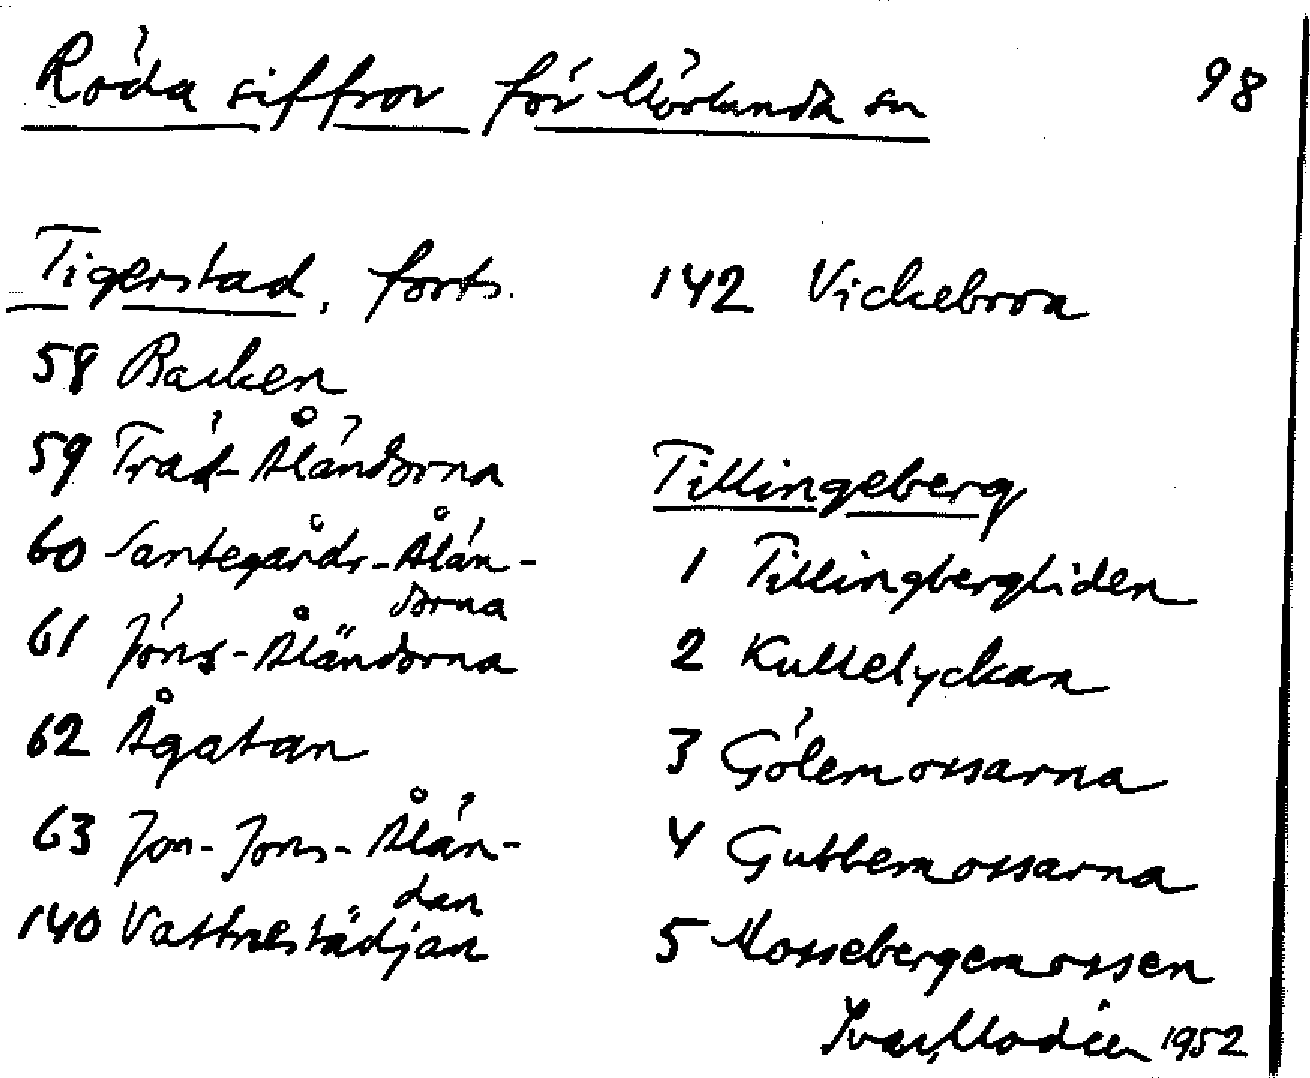 Röda siffror för Mörlanda sn
98
Tigerstad, forts.
58 Backen
59 Träd-Åländorna
60 Santegårds-Ålän-
dorna
61 Jöns-Åländorna
62 Ågatan
63 Jon-Jons-Ålän-
dan
140 Vattnestädjan
142 Vickebroa
Tillingeberg
1 Tillingbergliden
2 Kullelyckan
3 Gölemossarna
4 Gubbemossarna
5 Mossebergemossen
Ivar Modéer 1952